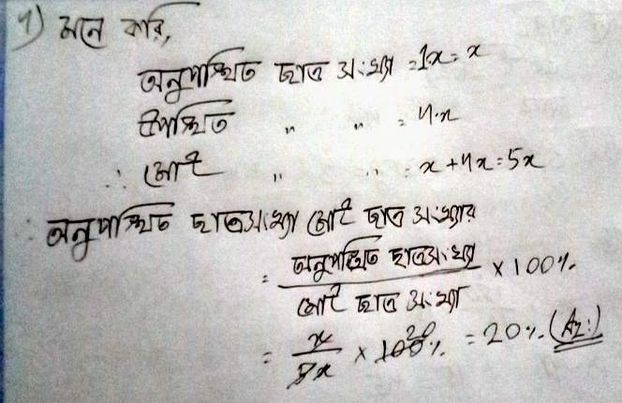 ৭) মনে করি,
অনুপস্থিত ছাত্র সংখ্যা = 1x = x
উপস্থিত " " = 4x
∴ মোট " " = x + 4x = 5x
∴ অনুপস্থিত ছাত্রসংখ্যা মোট ছাত্র সংখ্যার
= অনুপস্থিত ছাত্রসংখ্যা / মোট ছাত্র সংখ্যা × 100%
= x / 5x × 100% 20 = 20% (Ans:)